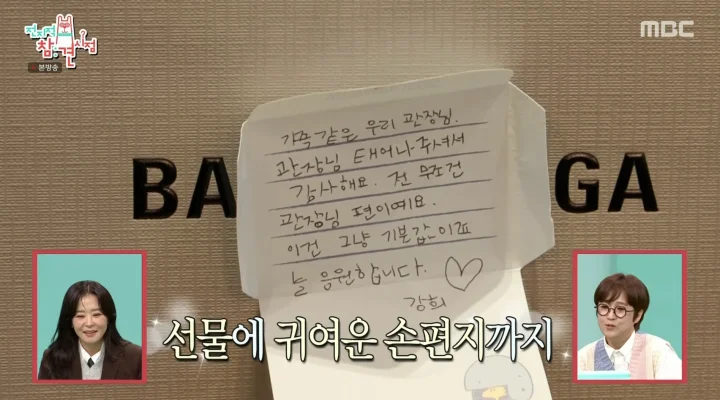 전지적
참견시점
본방송
MBC
BA GA
가족같은 우리 관장님.
관장님 태어나주셔서
감사해요. 전 무조건
관장님 편이예요.
이건 그냥 기본값이죠
늘 응원합니다. ♡
강희
선물에 귀여운 손편지까지